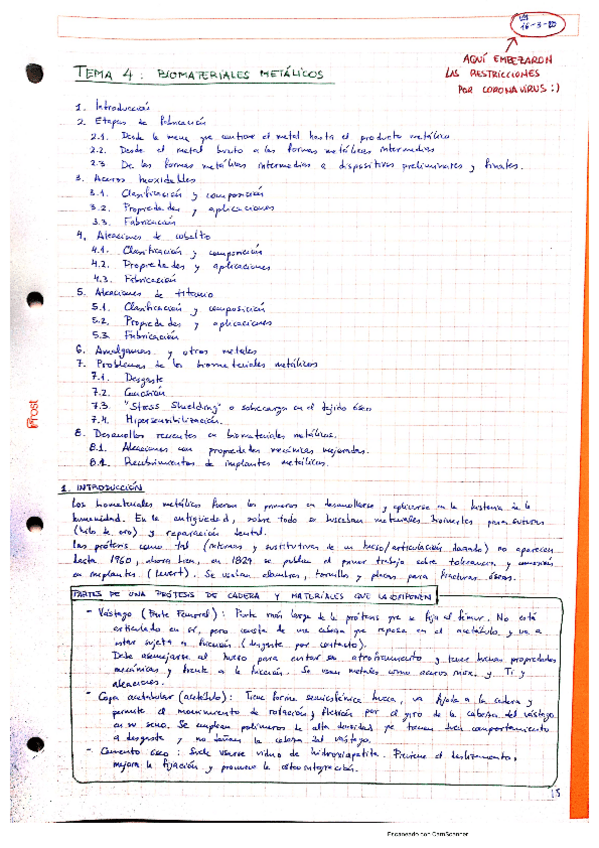 16-3-20
AQUÍ EMPEZARON
LAS RESTRICCIONES
POR CORONAVIRUS :)
TEMA 4: BIOMATERIALES METÁLICOS
1. Introducción
2. Etapas de fabricación
2.1. Desde la mena que contiene el metal hasta el producto metálico
2.2. Desde el metal bruto a las formas metálicas intermedias
2.3 De las formas metálicas intermedias a dispositivos preliminares y finales.
3. Aceros inoxidables
3.1. Clasificación y composición
3.2. Propiedades y aplicaciones
3.3. Fabricación
4. Aleaciones de cobalto
4.1. Clasificación y composición
4.2. Propiedades y aplicaciones
4.3. Fabricación
5. Aleaciones de titanio
5.1. Clasificación y composición
5.2. Propiedades y aplicaciones
5.3. Fabricación
6. Amalgamas y otros metales
7. Problemas de los biomateriales metálicos
7.1. Desgaste
7.2. Corrosión
7.3. "Stress Shielding" o sobrecarga en el tejido óseo
7.4. Hipersensibilización.
8. Desarrollos recientes en biomateriales metálicos.
8.1. Aleaciones con propiedades mecánicas mejoradas.
8.1. Recubrimientos de implantes metálicos.
1. INTRODUCCIÓN
Los biomateriales metálicos fueron los primeros en desarrollarse y aplicarse en la historia de la
humanidad. En la antigüedad, sobre todo se buscaban materiales para suturas
(hilo de oro) y reparación dental.
Las prótesis como tal (internas y sustitutivas de un hueso/articulación dañado) no aparecen
hasta 1960, ahora bien, en 1829 se publica el primer trabajo sobre tolerancia y corrosión
en implantes. (Levert). Se usaban alambres, tornillos y placas para fracturas óseas.
PARTES DE UNA PRÓTESIS DE CADERA Y MATERIALES QUE LA COMPONEN
- Vástago (Parte Femoral): Parte más larga de la prótesis que se fija al fémur. No está
articulado en sí, pero consta de una cabeza que reposa en el acetábulo, y va a
estar sujeta a fricción. (desgaste por contacto).
Debe asemejarse al hueso para evitar su atrofiamiento y tener buenas propiedades
mecánicas y frente a la fricción. Se usan metales como aceros inox. y Ti y
aleaciones.
- Copa acetabular (acetábulo): Tiene forma semiesférica hueca, va fijada a la cadera y
permite el movimiento de rotación y flexión por el giro de la cabeza del vástago
en su seno. Se emplean polímeros de alta densidad, ya tienen buen comportamiento
a desgaste y no dañan la cabeza del vástago.
- Cemento óseo: Suele usarse vidrio de hidroxiapatita. Previene el deslizamiento,
mejora la fijación y promueve la osteointegración.
Prost
Escaneado con CamScanner